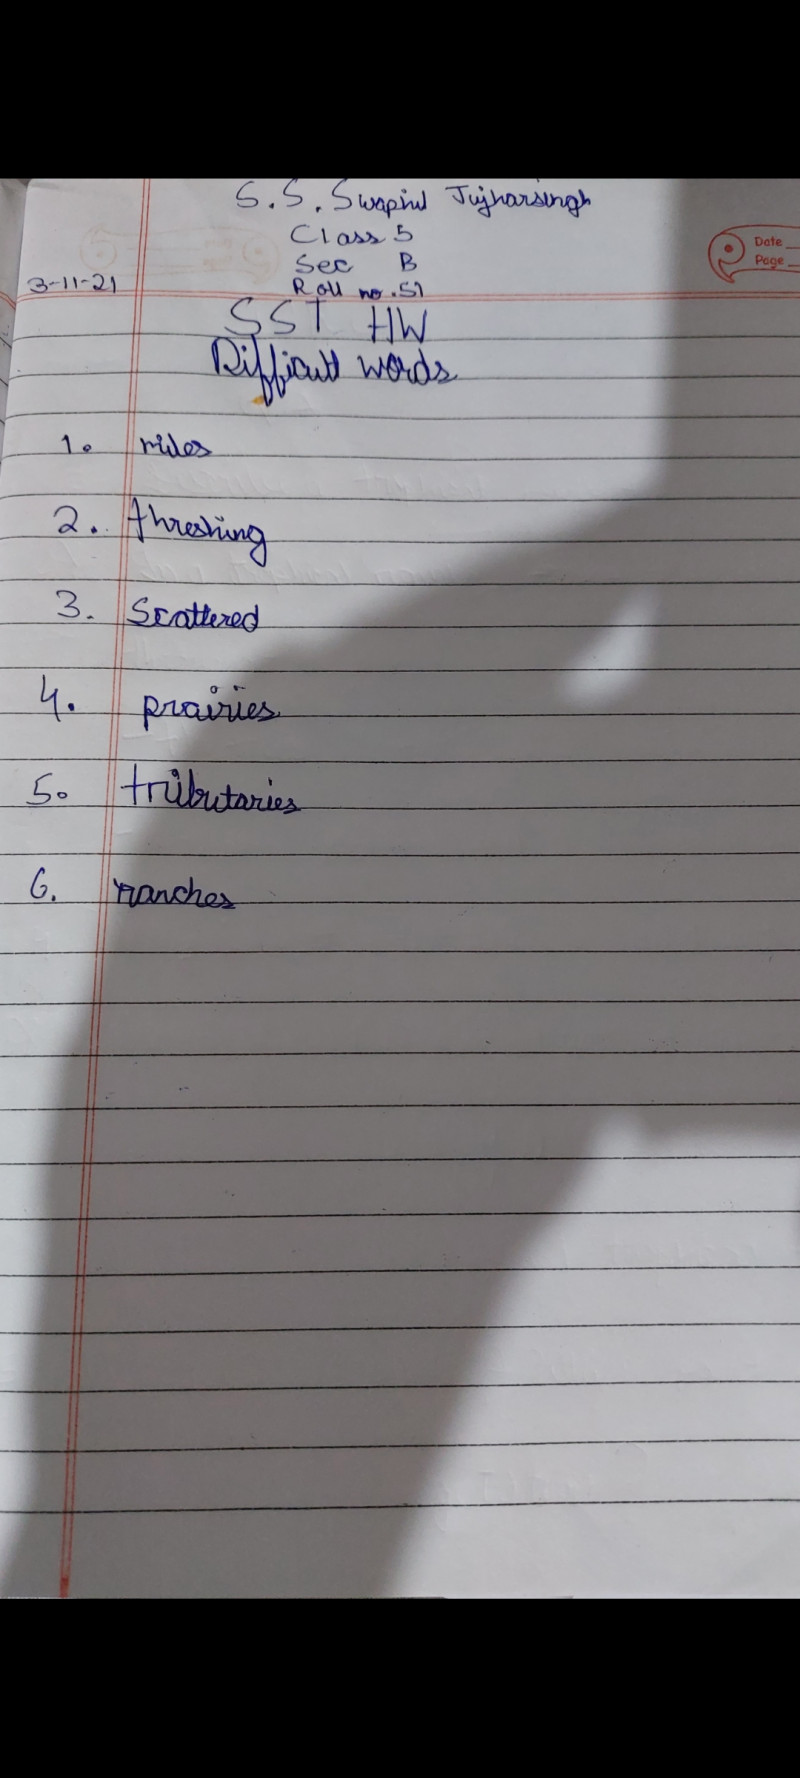 S.S. Swapnil Jujharsingh
Class 5
Sec B
Date
Page
3-11-21
Roll no. 51
SST HW
Difficult words
1. miles
2. threshing
3. Scattered
4. prairies
5. tributaries
6. ranches